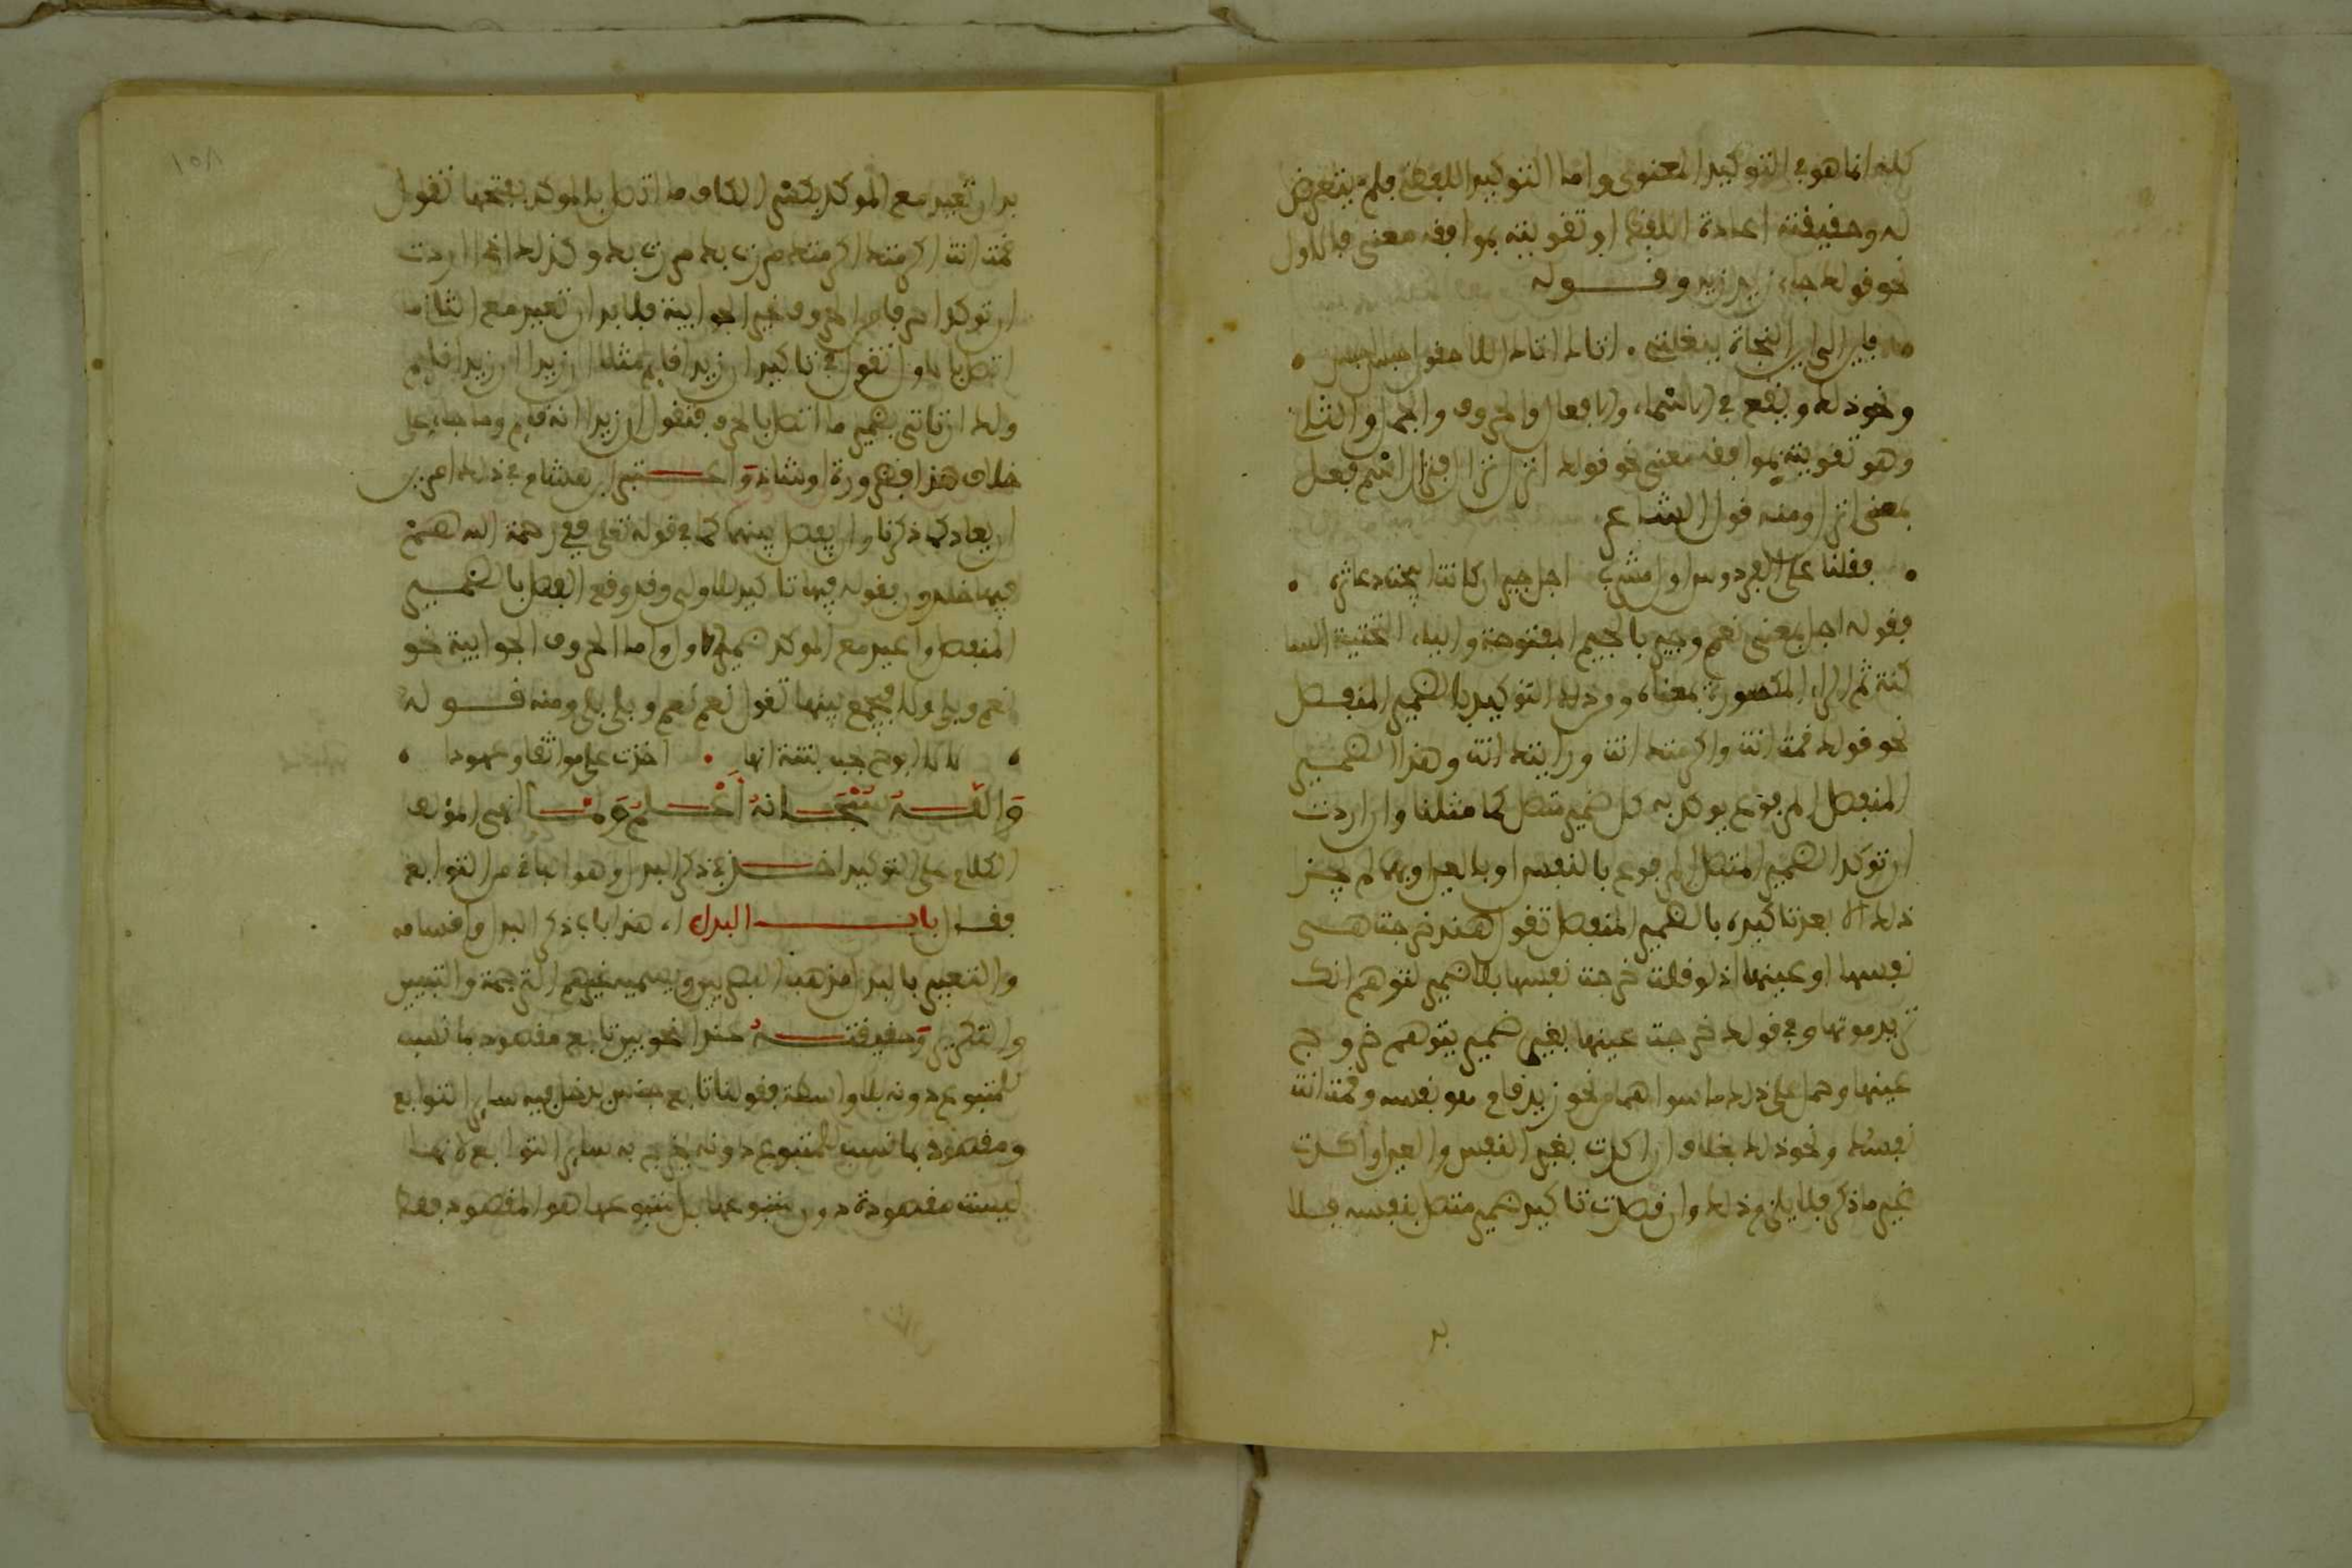 كله انما هو في التوكيد المعنوي واما التوكيد اللفظي فلم يتعرض
له وحقيقته اعادة اللفظ او تقويته بموافقه معنى فالاول
نحو قولك جاء زيد زيد وقوله
فاين الى اين النجاة ببغلتي • اتاك اتاك اللاحقون احبس احبس •
ونحو ذلك ويقع في الاسماء والافعال والحروف والجمل والثاني
وهو تقويته بموافقه معنى نحو قولك انزل نزال فنزال اسم فعل
بمعنى انزل ومنه قول الشاعر
• فقلنا على الفردوس اول مشرب اجل جير ان كانت ابيحت دعاثره •
فقوله اجل بمعنى نعم وجير بالجيم المفتوحة والياء التحتية السا
كنة ثم الراء المكسورة بمعناه ومن ذلك التوكيد بالضمير المنفصل
نحو قولك قمت انت واكرمتك انت ورايتك انت وهذا الضمير
المنفصل المرفوع يوكد به كل ضمير متصل كما مثلنا وان اردت
ان توكد الضمير المتصل المرفوع بالنفس او بالعين او بهما لم يجز
ذلك الا بعد تاكيده بالضمير المنفصل تقول هند خرجت هي
نفسها او عينها اذ لو قلت خرجت نفسها بلا ضمير لتوهم انك
تريد موتها وفي قولك خرجت عينها بغير ضمير يتوهم خروج
عينها وحمل على ذلك ما سواهما نحو زيد قام هو نفسه وقمت انت
نفسك ونحو ذلك بخلاف ان اكدت بغير النفس والعين او اكدت
غير ما ذكر فلا يلزم ذلك وان قصدت تاكيد ضمير متصل بنفسه فلا
بد
١٥٨
بد ان تعيد مع الموكد بكسر الكاف ما اتصل بالموكد بفتحها تقول
قمت انت اكرمتك اكرمتك مررت بك مررت بك وكذلك اذا اردت
ان توكد احرفا من الحروف غير الجوابية فلا بد ان تعيد مع الثاني ما
اتصل بالاول تقول في تاكيد ان زيدا قايم مثلا ان زيدا ان زيدا قايم
ولك ان تاتي بضمير ما اتصل بالحرف فتقول ان زيدا انه قايم وما جاء على
خلاف هذا فضرورة او شاذ واعتبر ابن هشام في ذلك امرين
ان يعاد كما ذكرنا وان يفصل بينهما كما في قوله تعلى ففي رحمة الله هم
فيها خلدون فقوله فيها تاكيد للاولى وقد وقع الفصل بالضمير
المنفصل واعيد مع الموكد ضمير الاول واما الحروف الجوابية نحو
نعم وبلى ولا فيجمع بينها تقول نعم نعم وبلى بلى ومنه قوله
• لا لا ابوح بحب بثنة انها • اخذت علي مواثقا وعهودا •
والله سبحانه اعلم ولما انهى المولف
الكلام على التوكيد اخذ في ذكر البدل وهو الباقي من التوابع
فقال باب البدل اي هذا باب في ذكر البدل واقسامه
والتعبير بالبدل مذهب البصريين ويسميه غيرهم الترجمة والتبيين
والتكرير وحقيقته عند النحويين تابع مقصود بما نسب
للمتبوع دونه بلا واسطة فقولنا تابع جنس يدخل فيه ساير التوابع
ومقصود بما نسب للمتبوع دونه يخرج به ساير التوابع لانها
ليست مقصودة دون متبوعها بل متبوعها هو المقصود فقط